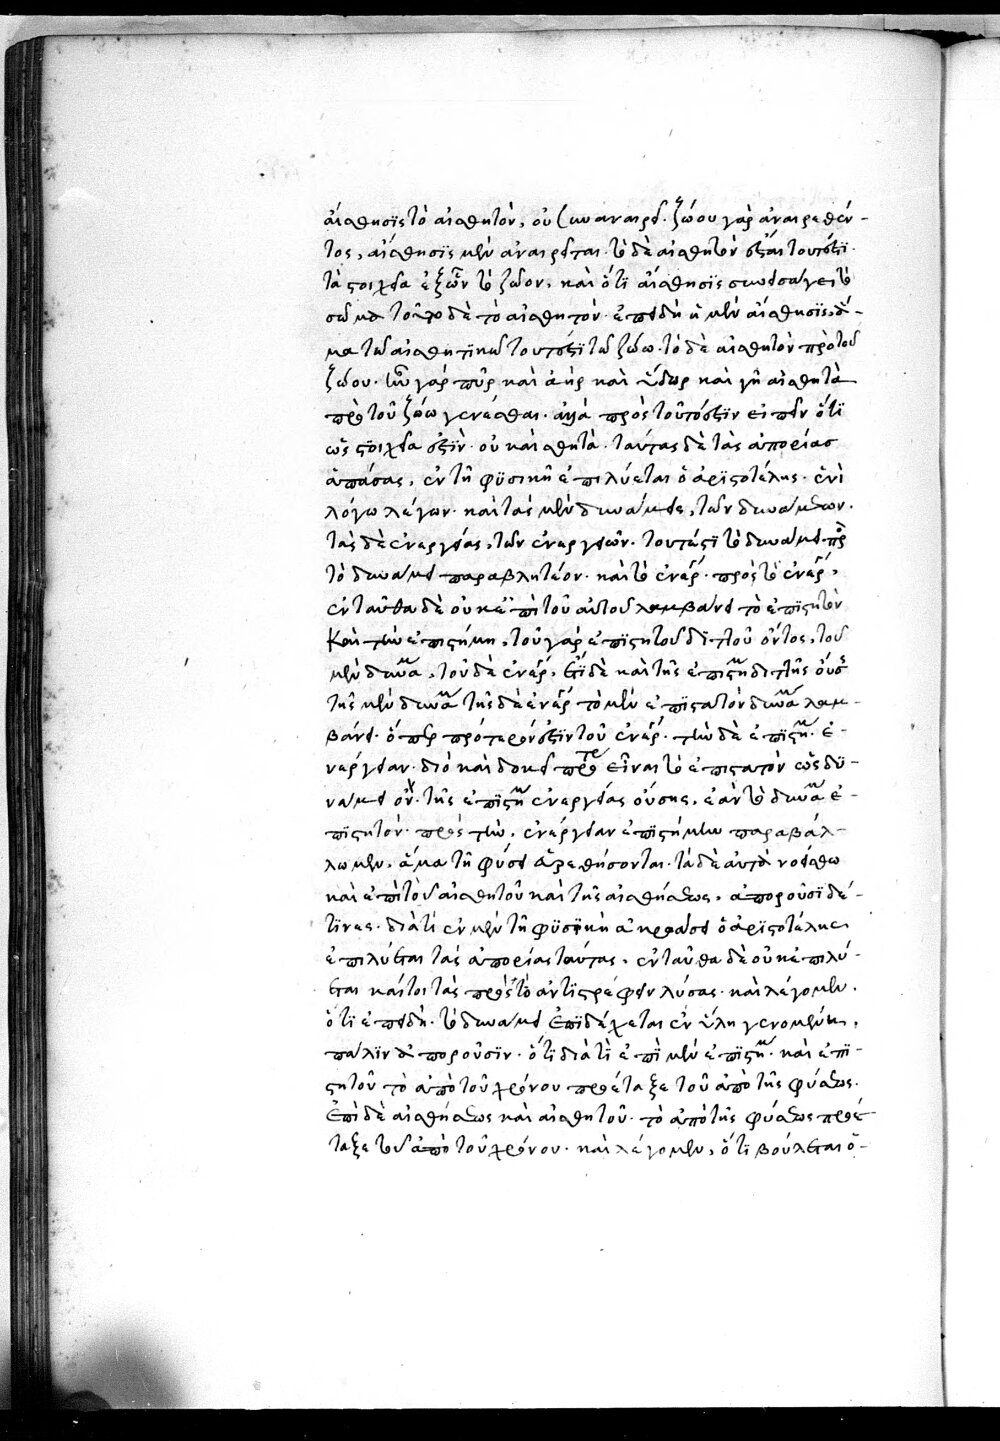 αἴσθησις τὸ αἰσθητὸν, οὐ συναναιρεῖ. ζώου γὰρ ἀναιρεθέν-
τος, αἴσθησις μὲν ἀναιρεῖται. τὸ δὲ αἰσθητὸν ἔσται τουτέστι
τὰ στοιχεῖα ἐξ ὧν τὸ ζῶον, καὶ ὅτι αἴσθησις συνεισάγει τὸ
σῶμα τοῦτο δὲ τὸ αἰσθητόν. ἐπειδὴ ἡ μὲν αἴσθησις, ἅ-
μα τῶ αἰσθητικῶ τουτέστι τῶ ζώω. τὸ δὲ αἰσθητὸν πρὸ τοῦ
ζώου. ἦν γὰρ πῦρ καὶ ἀὴρ καὶ ὕδωρ καὶ γῆ αἰσθητὰ
πρὸ τοῦ ζώω γενέσθαι. ἀλλὰ πρὸς τοῦτό ἐστιν εἰπεῖν ὅτι
ὡς στοιχεῖα ἐστὶν. οὐκ αἰσθητά. ταύτας δὲ τὰς ἀπορίας
ἁπάσας, ἐν τῆ φυσικῆ ἐπιλύεται ὁ ἀριστοτέλης. ἑνὶ
λόγω λέγων. καὶ τὰς μὲν δυνάμεις, τῶν δυνάμεων.
τὰς δὲ ἐνεργείας, τῶν ἐνεργειῶν. τουτέστι τὸ δυνάμει πρὸς
τὸ δυνάμει παραβλητέον. καὶ τὸ ἐνερ. πρὸς τὸ ἐνερ,
ἐνταῦθα δὲ οὐκ ἐπὶ τοῦ αὐτοῦ λαμβάνει τὸ ἐπιστητὸν
καὶ τὴν ἐπιστήμη, τοῦ γὰρ ἐπιστητοῦ διττοῦ ὄντος, τοῦ
μὲν δυνα, τοῦ δὲ ἐνερ, ἔτι δὲ καὶ τῆς ἐπιστημ διττῆς οὔσ
τῆς μὲν δυνα τῆς δὲ ἐνερ τὸ μὲν ἐπιστατὸν δυνα λαμ-
βάνει. ὅπερ πρότερόν ἐστιν τοῦ ἐνερ. τὴν δὲ ἐπιστημ. ἐ-
νεργείαν. διὸ καὶ δοκεῖ προτρ εἶναι τὸ ἐπιστατὸν ὡς δυ-
νάμει ὂν. τῆς ἐπιστημ ἐνεργείας οὔσης, ἐὰν τὸ δυνα ἐ-
πιστητόν. πρὸς τὴν, ἐνέργειαν ἐπιστήμην παραβάλ-
λωμεν, ἅμα τῆ φύσει εὑρεθήσονται. τὰ δὲ αὐτὰ νοείσθω
καὶ ἐπὶ τοῦ αἰσθητοῦ καὶ τῆς αἰσθήσεως, ἀποροῦσι δέ
τινες. διὰ τί ἐν μὲν τῆ φυσικῆ ἀκροάσει ὁ ἀριστοτέλης
ἐπιλύεται τὰς ἀπορίας ταύτας. ἐνταῦθα δὲ οὐκ ἐπιλύ-
εται καίτοι τὰς πρὸς τὸ ἀντιστρέφειν λύσας. καὶ λέγομεν.
ὅτι ἐπειδὴ. τὸ δυνάμει ἐπιδέχεται ἐν ὕλη γενομένη,
πάλιν ἀποροῦσιν. ὅτι διὰ τὶ ἐπὶ μὲν ἐπιστημ. καὶ ἐπι-
στητοῦ τὸ ἀπὸ τοῦ χρόνου προέταξε τοῦ ἀπὸ τῆς φύσεως.
ἐπὶ δὲ αἰσθήσεως καὶ αἰσθητοῦ. τὸ ἀπὸ τῆς φύσεως προέ
ταξε τοῦ ἀπὸ τοῦ χρόνου. καὶ λέγομεν, ὅτι βούλεται ὁ-